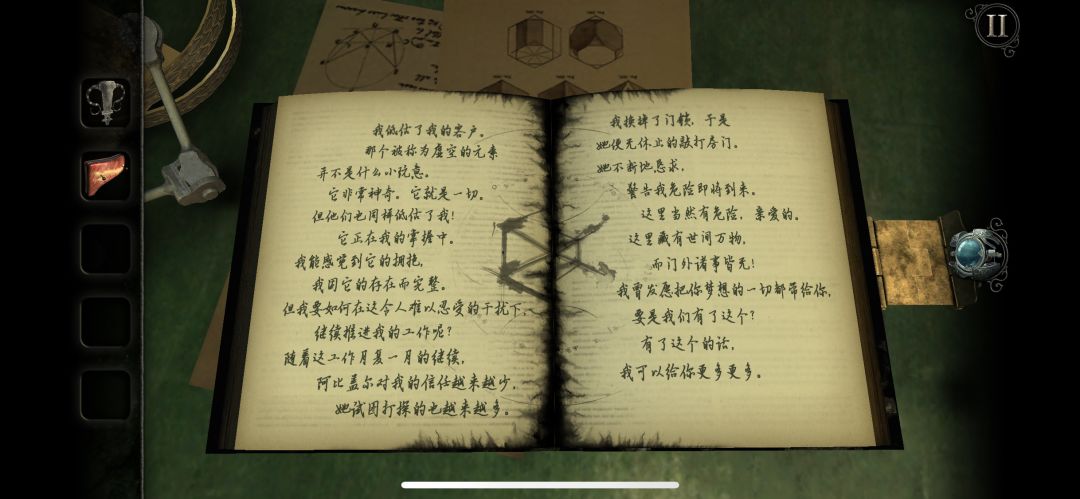 我低估了我的客户。
那个被称为虚空的元素
并不是什么小玩意。
它非常神奇。它就是一切。
但他们也同样低估了我!
它正在我的掌握中。
我能感觉到它的拥抱,
我因它的存在而完整。
但我要如何在这令人难以忍受的干扰下,
继续推进我的工作呢?
随着这工作月复一月的继续,
阿比盖尔对我的信任越来越少,
她试图打探的也越来越多。
我换掉了门锁, 于是
她便无休止的敲打房门。
她不断地恳求,
警告我危险即将到来。
这里当然有危险, 亲爱的。
这里藏有世间万物,
而门外诸事皆无!
我曾发愿把你梦想的一切都带给你,
要是我们有了这个?
有了这个的话,
我可以给你更多更多。